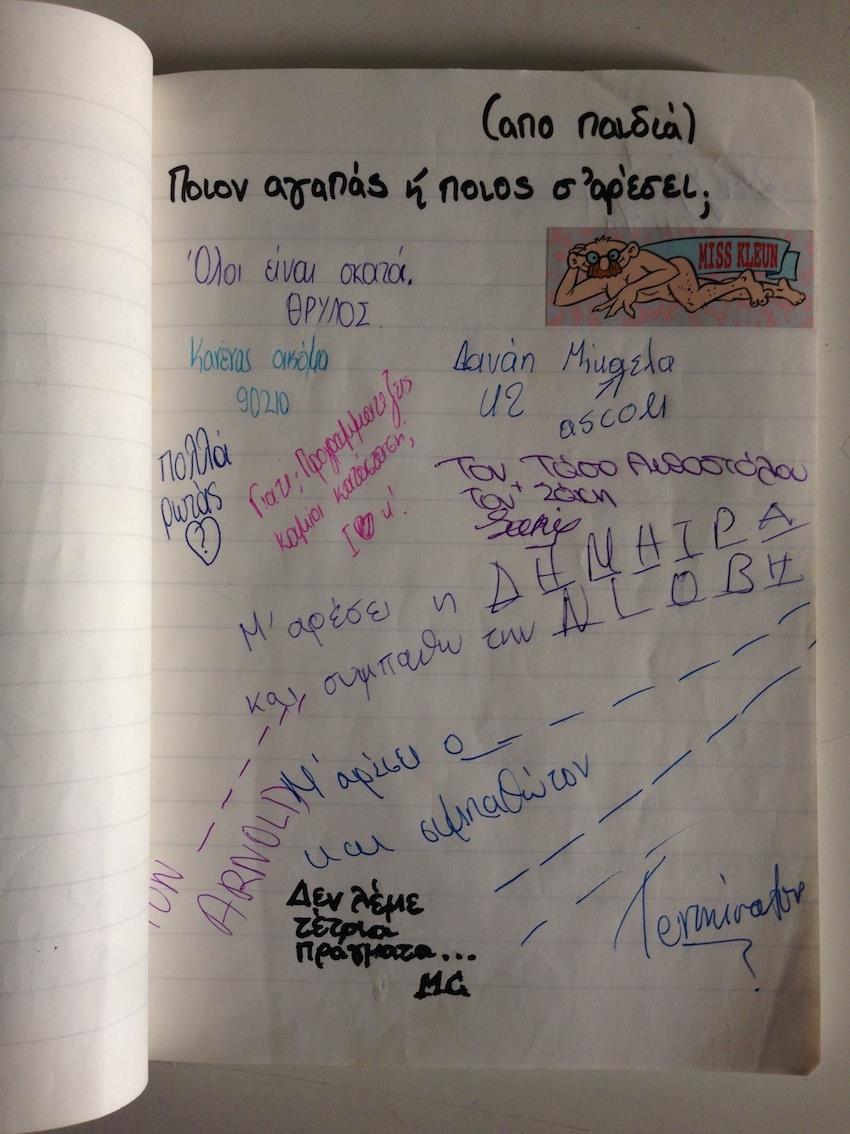 (απο παιδιά)
Ποιον αγαπάς ή ποιος σ'αρέσει;
MISS KLEUN
Όλοι είναι σκατά.
ΘΡΥΛΟΣ
Κανένας ακόμα
90210
Δανάη Μικαέλα
U2
ascom
Πολλά
ρωτάς
?
Γιατί; Προγραμματίζεις
καμιά κατάσταση;
I
Τον Τάσο
τον Σάκη
Sakis
Μ' αρέσει η ΔΗΜΗΤΡΑ
και συμπαθώ την
ΤΟΝ
ARNOLD
Μ' αρέσει ο
και συμπαθώ τον
Δεν λέμε
τέτοια
πράγματα...
M.C
Terminator
?